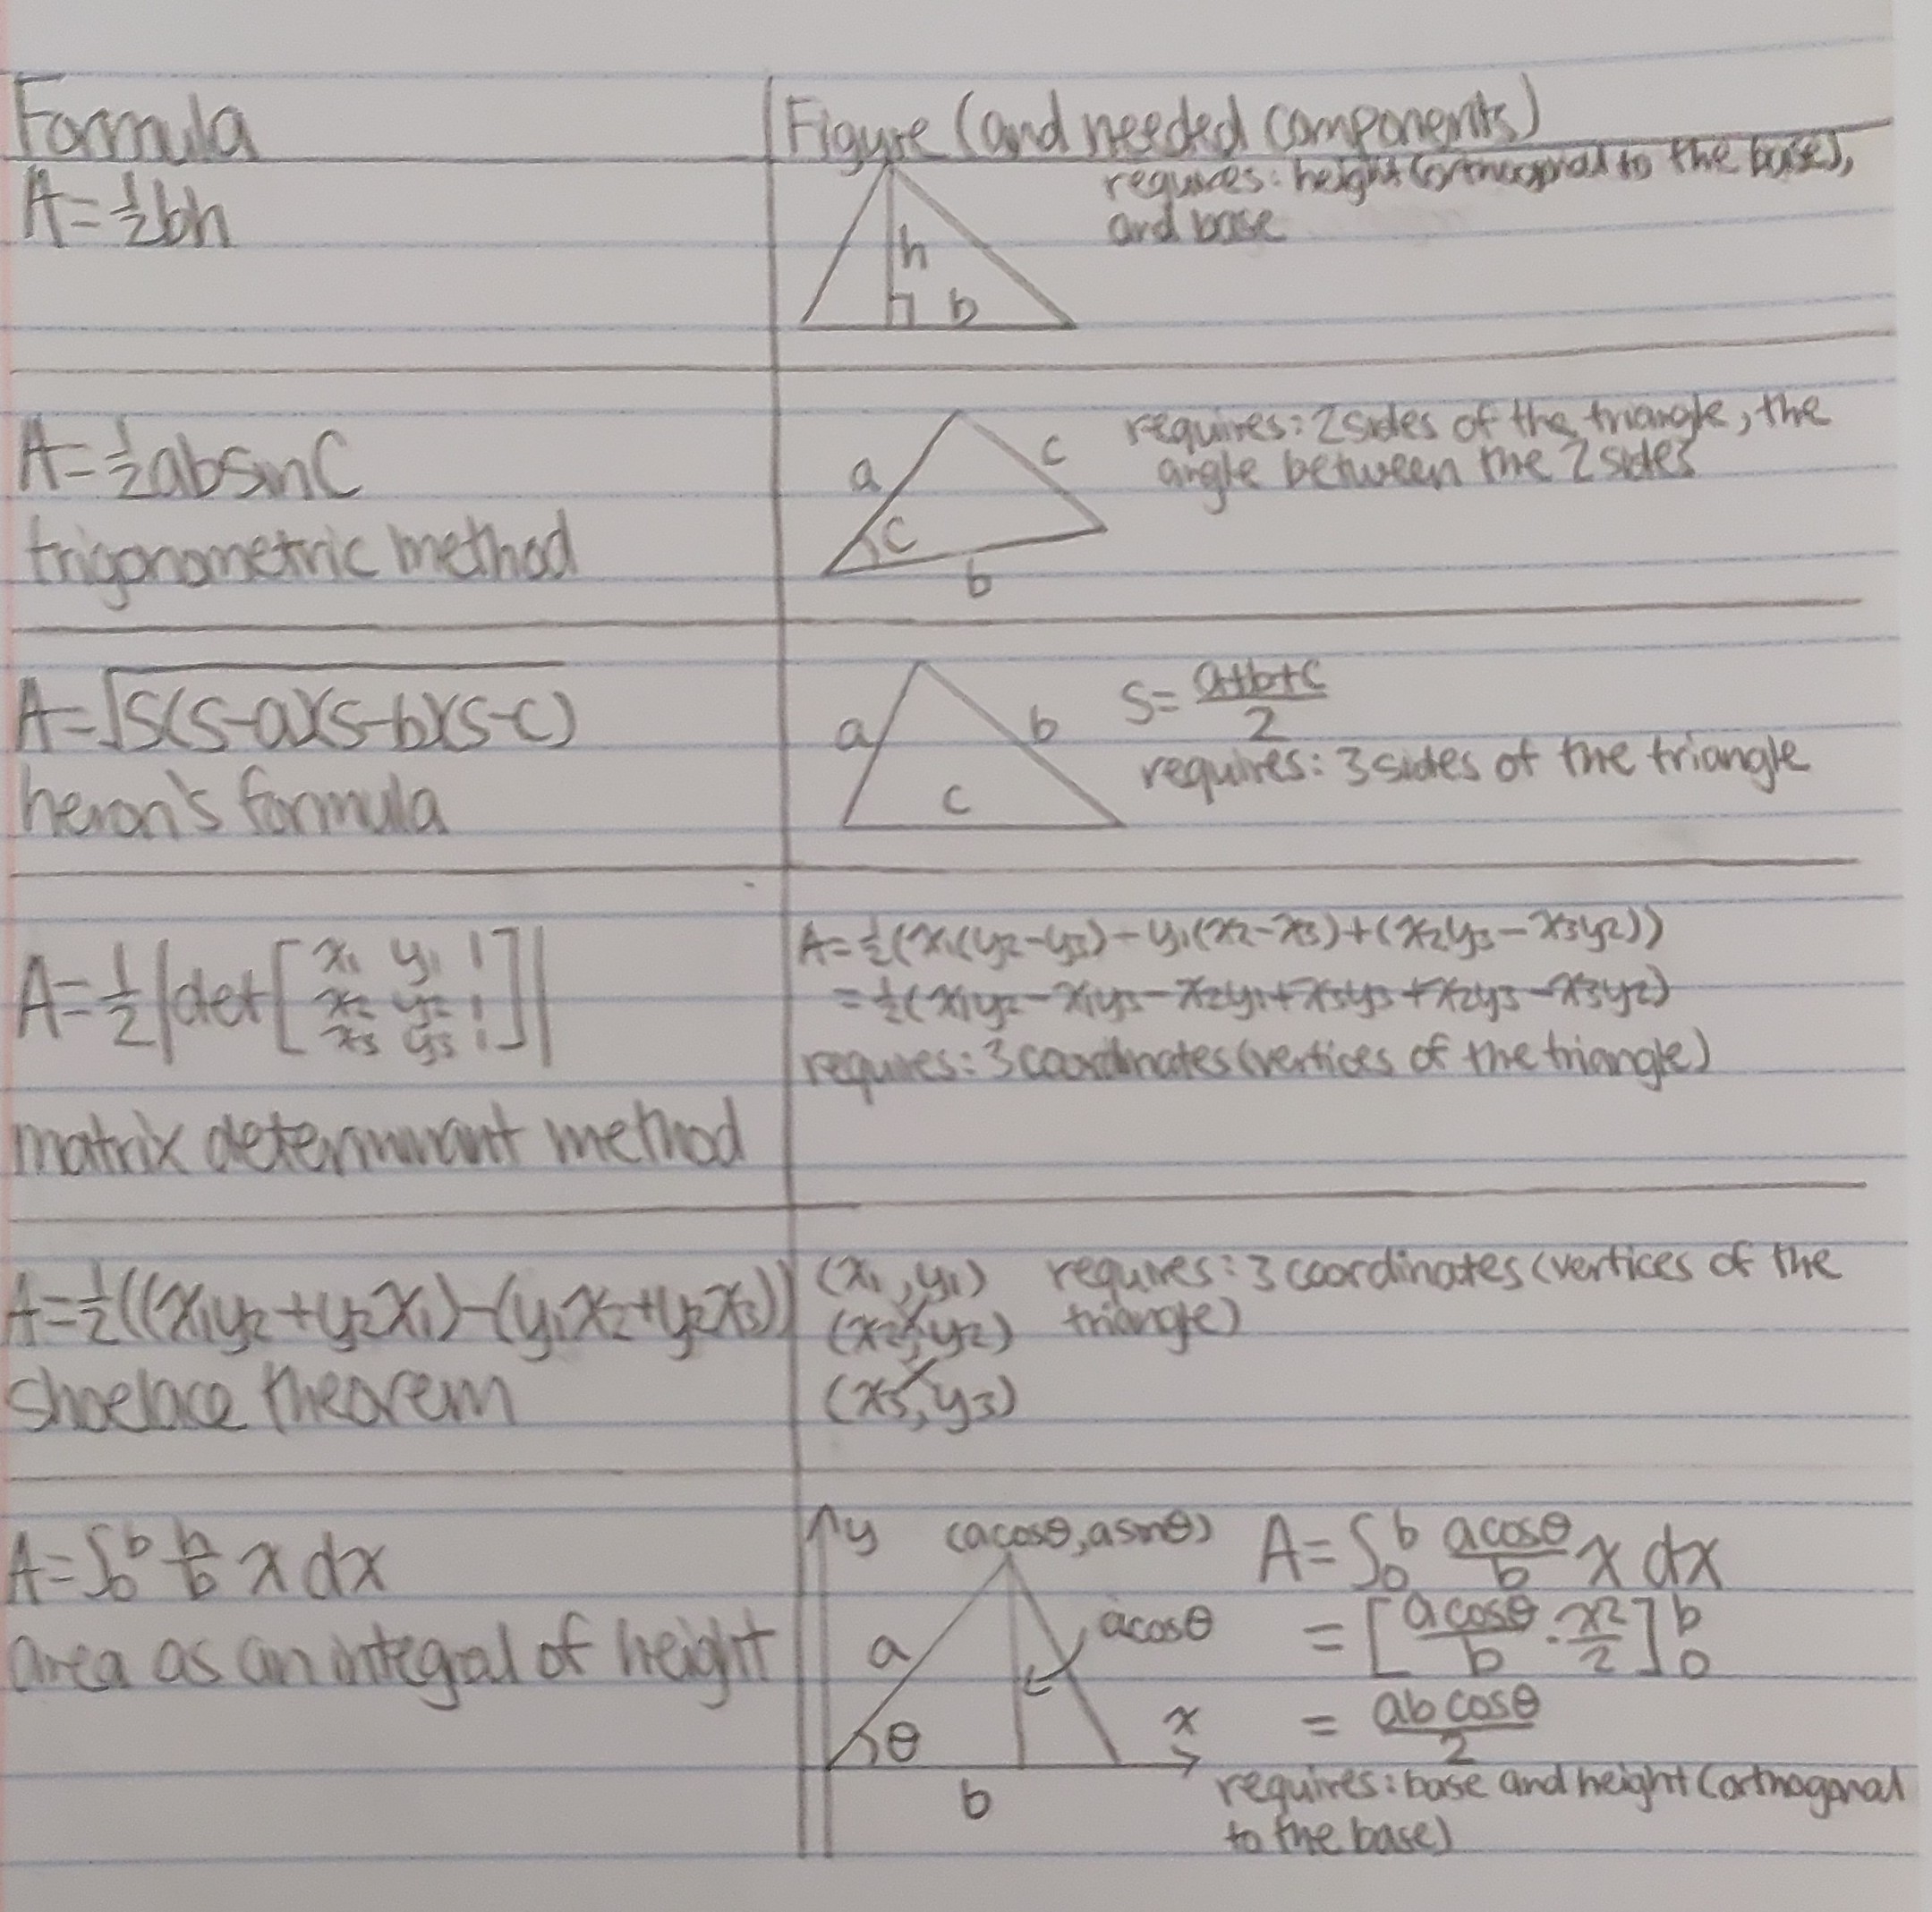 Formula
Figure (and needed components)
A=½bh
requires: height (orthogonal to the base),
and base
h
b
A=½absinC
trigonometric method
a
c
C
b
requires: 2 sides of the triangle, the
angle between the 2 sides
A=√s(s-a)(s-b)(s-c)
heron's formula
a
b
c
s=a+b+c/2
requires: 3 sides of the triangle
A=1/2|det[x₁ y₁ 1
x₂ y₂ 1
x₃ y₃ 1]|
matrix determinant method
A=½(x₁(y₂-y₃)-y₁(x₂-x₃)+(x₂y₃-x₃y₂))
=½(x₁y₂-x₁y₃-x₂y₁+x₃y₃+x₂y₃-x₃y₂)
requires: 3 coordinates (vertices of the triangle)
A=½((x₁y₂+y₂x₁)-(y₁x₂+y₂x₃))
shoelace theorem
(x₁,y₁)
(x₂,y₂)
(x₃,y₃)
requires: 3 coordinates (vertices of the
triangle)
A=∫₀ᵇ h/b x dx
area as an integral of height
y
(acosθ,asinθ)
a
acosθ
θ
x
b
A=∫₀ᵇ acosθ/b x dx
=[acosθ/b · x²/2]₀ᵇ
= abcosθ/2
requires: base and height (orthogonal
to the base)